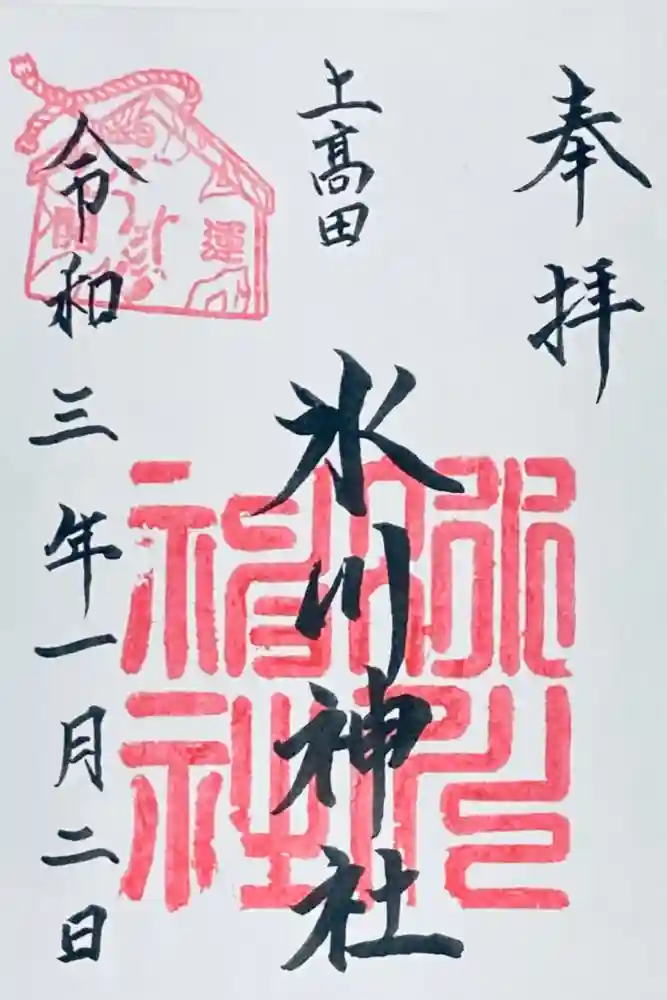 奉拝
上高田
氷川神社
令和三年一月二日
開運